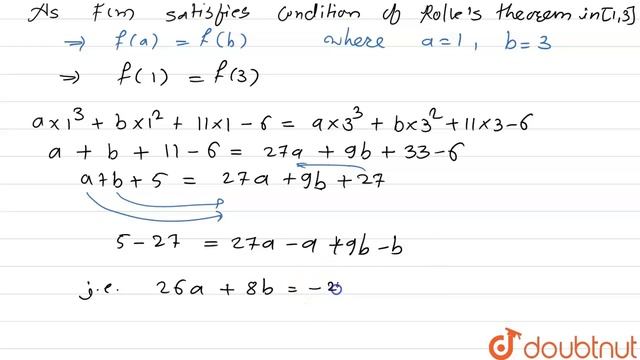 As f(x) satisfies condition of Rolle's theorem in [1,3]
⇒ f(a) = f(b) where a=1, b=3
⇒ f(1) = f(3)
a×1³ + b×1² + 11×1 - 6 = a×3³ + b×3² + 11×3 - 6
a + b + 11 - 6 = 27a + 9b + 33 - 6
a+b+5 = 27a + 9b + 27
5 - 27 = 27a - a + 9b - b
i.e. 26a + 8b = - 2
doubtnut